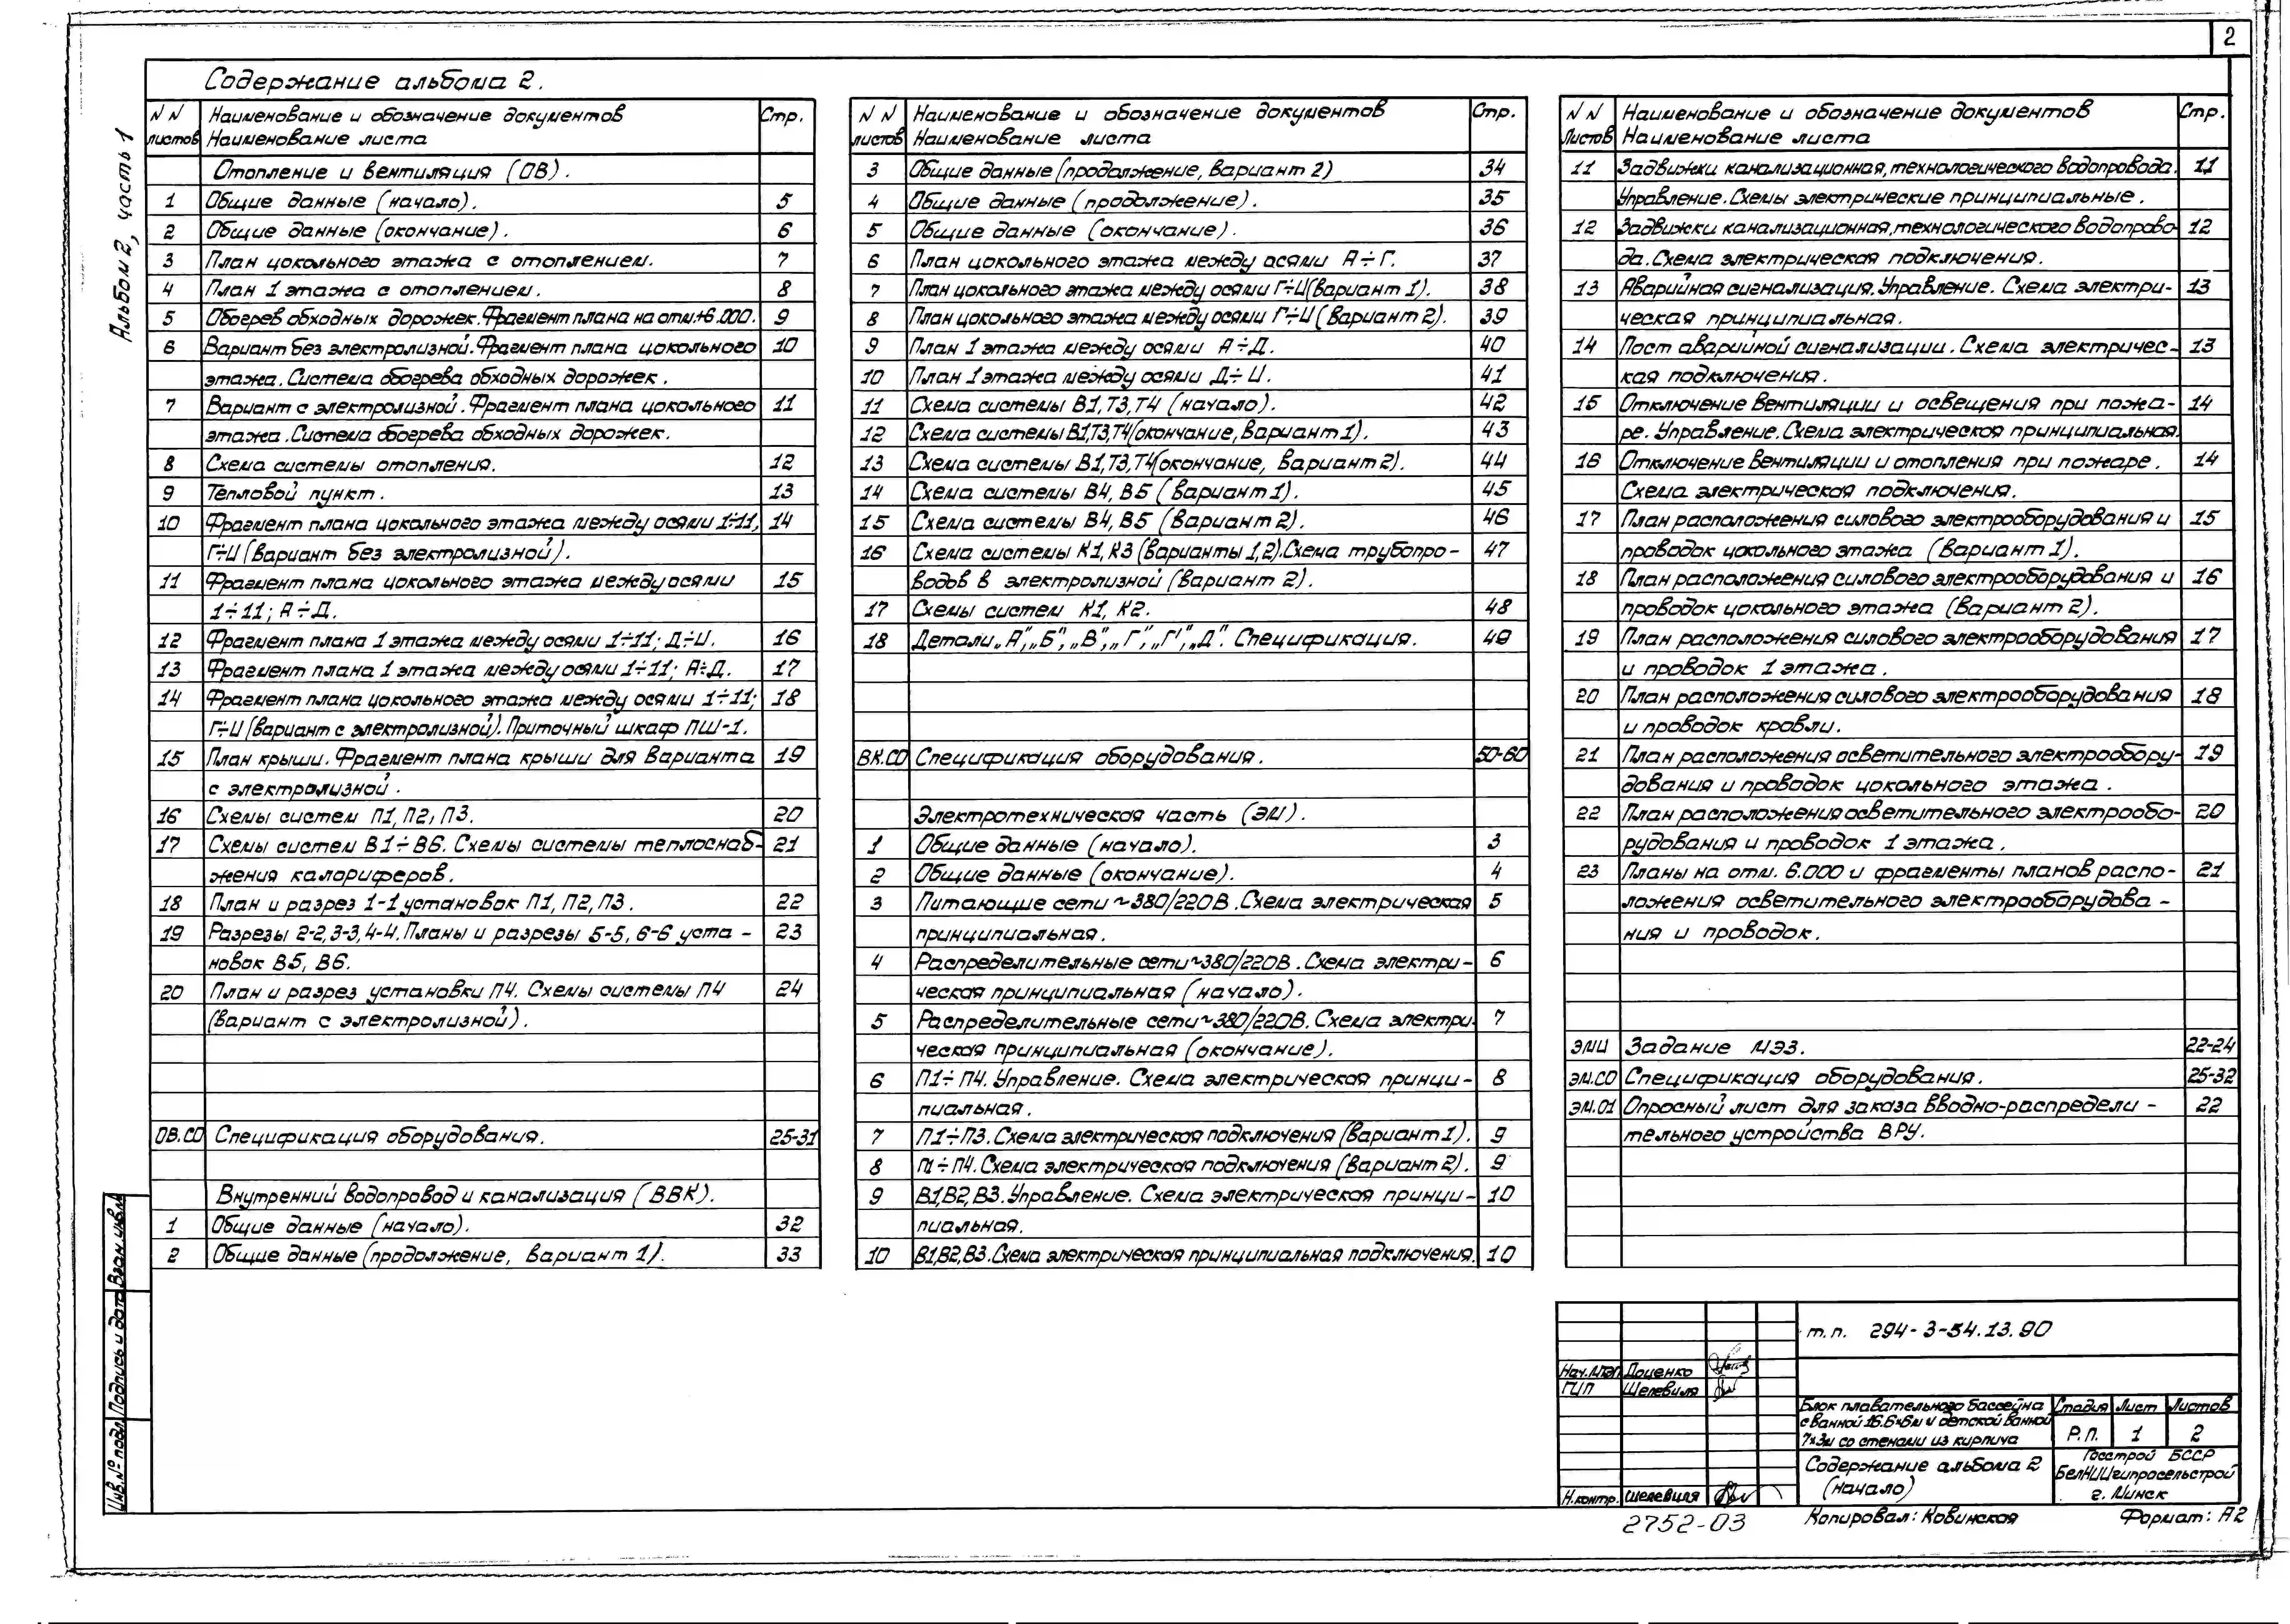 2
Альбом 2, часть 1
Содержание альбома 2.
NN листов | Наименование и обозначение документов Наименование листа | Стр.
Отопление и вентиляция (ОВ).
1 Общие данные (начало). 5
2 Общие данные (окончание). 6
3 План цокольного этажа с отоплением. 7
4 План 1 этажа с отоплением. 8
5 Обогрев обходных дорожек. Фрагмент плана на отм.+6.000. 9
6 Вариант без электролизной. Фрагмент плана цокольного 10
этажа. Система обогрева обходных дорожек.
7 Вариант с электролизной. Фрагмент плана цокольного 11
этажа. Система обогрева обходных дорожек.
8 Схема системы отопления. 12
9 Тепловой пункт. 13
10 Фрагмент плана цокольного этажа между осями 1÷11; 14
Г÷И (вариант без электролизной).
11 Фрагмент плана цокольного этажа между осями 15
1÷11; А÷Д.
12 Фрагмент плана 1 этажа между осями 1÷11; Д÷И. 16
13 Фрагмент плана 1 этажа между осями 1÷11; А÷Д. 17
14 Фрагмент плана цокольного этажа между осями 1÷11; 18
Г÷И (вариант с электролизной). Приточный шкаф ПШ-1.
15 План крыши. Фрагмент плана крыши для варианта 19
с электролизной.
16 Схемы систем П1, П2, П3. 20
17 Схемы систем В1÷В6. Схемы системы теплоснаб- 21
жения калориферов.
18 План и разрез 1-1 установок П1, П2, П3. 22
19 Разрезы 2-2, 3-3, 4-4. Планы и разрезы 5-5, 6-6 уста- 23
новок В5, В6.
20 План и разрез установки П4. Схемы системы П4 24
(вариант с электролизной).
ОВ.СО Спецификация оборудования. 25-31
Внутренний водопровод и канализация (ВВК).
1 Общие данные (начало). 32
2 Общие данные (продолжение, вариант 1). 33
NN листов | Наименование и обозначение документов Наименование листа | Стр.
3 Общие данные (продолжение, вариант 2) 34
4 Общие данные (продолжение). 35
5 Общие данные (окончание). 36
6 План цокольного этажа между осями А÷Г. 37
7 План цокольного этажа между осями Г÷И (вариант 1). 38
8 План цокольного этажа между осями Г÷И (вариант 2). 39
9 План 1 этажа между осями А÷Д. 40
10 План 1 этажа между осями Д÷И. 41
11 Схема системы В1, Т3, Т4 (начало). 42
12 Схема системы В1, Т3, Т4 (окончание, вариант 1). 43
13 Схема системы В1, Т3, Т4 (окончание, вариант 2). 44
14 Схема системы В4, В5 (вариант 1). 45
15 Схема системы В4, В5 (вариант 2). 46
16 Схема системы К1, К3 (варианты 1,2). Схема трубопро- 47
водов в электролизной (вариант 2).
17 Схемы систем К1, К2. 48
18 Детали „А", „Б", „В", „Г", „Г'", „Д". Спецификация. 49
ВК.СО Спецификация оборудования. 50-60
Электротехническая часть (ЭМ).
1 Общие данные (начало). 3
2 Общие данные (окончание). 4
3 Питающие сети ~380/220В. Схема электрическая 5
принципиальная.
4 Распределительные сети ~380/220В. Схема электри- 6
ческая принципиальная (начало).
5 Распределительные сети ~380/220В. Схема электри- 7
ческая принципиальная (окончание).
6 П1÷П4. Управление. Схема электрическая принци- 8
пиальная.
7 П1÷П3. Схема электрическая подключения (вариант 1). 9
8 П1÷П4. Схема электрическая подключения (вариант 2). 9
9 В1,В2,В3. Управление. Схема электрическая принци- 10
пиальная.
10 В1,В2,В3. Схема электрическая принципиальная подключения. 10
NN Листов | Наименование и обозначение документов Наименование листа | Стр.
11 Задвижки канализационная, технологического водопровода. 11
Управление. Схемы электрические принципиальные.
12 Задвижки канализационная, технологического водопрово- 12
да. Схема электрическая подключения.
13 Аварийная сигнализация. Управление. Схема электри- 13
ческая принципиальная.
14 Пост аварийной сигнализации. Схема электричес- 13
кая подключения.
15 Отключение вентиляции и освещения при пожа- 14
ре. Управление. Схема электрическая принципиальная.
16 Отключение вентиляции и отопления при пожаре. 14
Схема электрическая подключения.
17 План расположения силового электрооборудования и 15
проводок цокольного этажа (вариант 1).
18 План расположения силового электрооборудования и 16
проводок цокольного этажа (вариант 2).
19 План расположения силового электрооборудования 17
и проводок 1 этажа.
20 План расположения силового электрооборудования 18
и проводок кровли.
21 План расположения осветительного электрообору- 19
дования и проводок цокольного этажа.
22 План расположения осветительного электрообо- 20
рудования и проводок 1 этажа.
23 Планы на отм. 6.000 и фрагменты планов распо- 21
ложения осветительного электрооборудова-
ния и проводок.
ЭМИ Задание МЭЗ. 22-24
ЭМ.СО Спецификация оборудования. 25-32
ЭМ.01 Опросный лист для заказа вводно-распредели- 22
тельного устройства ВРУ.
Инв.№ подл. Подпись и дата Взам.инв.№
т.п. 294-3-54.13.90
Нач.МТЭП Доценко
ГИП Шелевиля
Н.контр. Шелевиля
Блок плавательного бассейна
с ванной 16.6×6м и детской ванной
7×3м со стенами из кирпича
Стадия Лист Листов
Р.П. 1 2
Содержание альбома 2
(начало)
Госстрой БССР
БелНИИгипросельстрой
г. Минск
2752-03
Копировал: Ковинская
Формат: А2